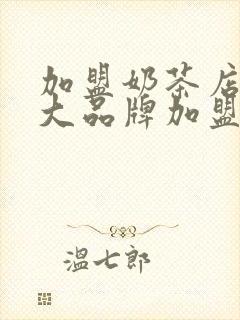 加盟奶茶店
大品牌加盟
温七郎